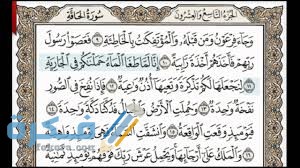 الجزء التاسع والعشرون سورة الحاقة
وَجَآءَ فِرْعَوْنُ وَمَن قَبْلَهُۥ وَٱلْمُؤْتَفِكَٰتُ بِٱلْخَاطِئَةِ ٩ فَعَصَوْا۟ رَسُولَ
رَبِّهِمْ فَأَخَذَهُمْ أَخْذَةً رَّابِيَةً ١٠ إِنَّا لَمَّا طَغَا ٱلْمَآءُ حَمَلْنَٰكُمْ فِى ٱلْجَارِيَةِ
١١ لِنَجْعَلَهَا لَكُمْ تَذْكِرَةً وَتَعِيَهَآ أُذُنٌ وَٰعِيَةٌ ١٢ فَإِذَا نُفِخَ فِى ٱلصُّورِ
نَفْخَةٌ وَٰحِدَةٌ ١٣ وَحُمِلَتِ ٱلْأَرْضُ وَٱلْجِبَالُ فَدُكَّتَا دَكَّةً وَٰحِدَةً ١٤
فَيَوْمَئِذٍ وَقَعَتِ ٱلْوَاقِعَةُ ١٥ وَٱنشَقَّتِ ٱلسَّمَآءُ فَهِىَ يَوْمَئِذٍ وَاهِيَةٌ
١٦ وَٱلْمَلَكُ عَلَىٰٓ أَرْجَآئِهَا وَيَحْمِلُ عَرْشَ رَبِّكَ فَوْقَهُمْ يَوْمَئِذٍ ثَمَٰنِيَةٌ
فكرة